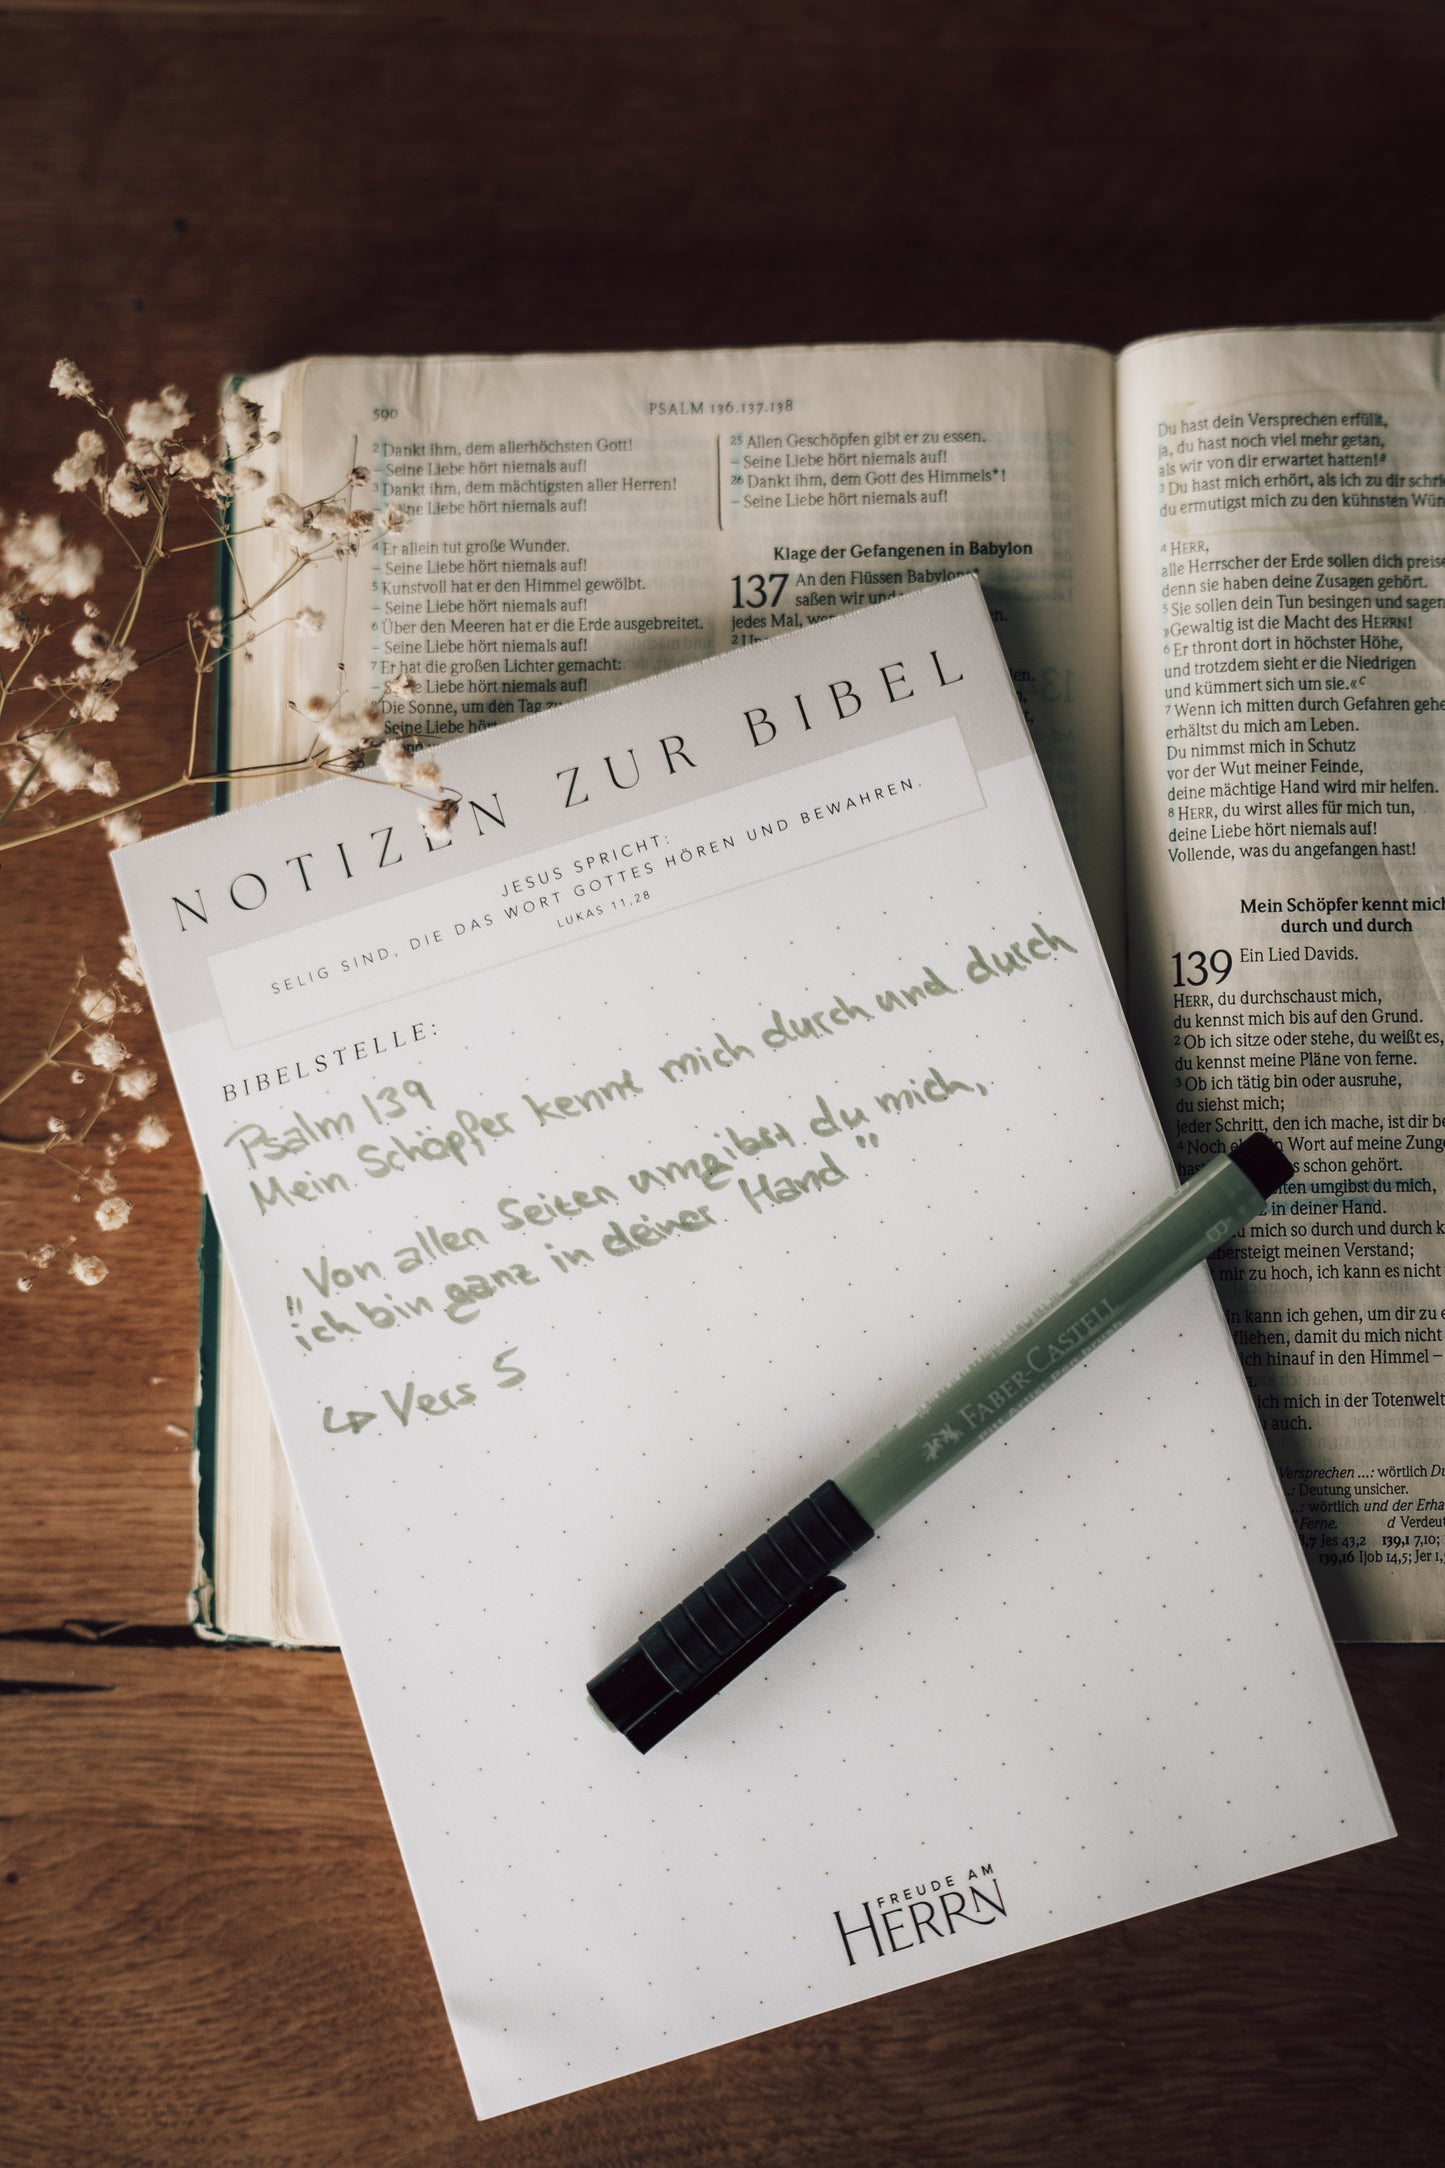 590
PSALM 136.137.138
2 Dankt ihm, dem allerhöchsten Gott!
– Seine Liebe hört niemals auf!
3 Dankt ihm, dem mächtigsten aller Herren!
Liebe hört niemals auf!
4 Er allein tut große Wunder.
– Seine Liebe hört niemals auf!
5 Kunstvoll hat er den Himmel gewölbt.
– Seine Liebe hört niemals auf!
6 Über den Meeren hat er die Erde ausgebreitet.
– Seine Liebe hört niemals auf!
7 Er hat die großen Lichter gemacht:
Seine Liebe hört niemals auf!
Die Sonne, um den Tag
Seine Liebe
25 Allen Geschöpfen gibt er zu essen.
– Seine Liebe hört niemals auf!
26 Dankt ihm, dem Gott des Himmels*!
– Seine Liebe hört niemals auf!
Klage der Gefangenen in Babylon
137 An den Flüssen Babylons*
saßen wir und
jedes Mal,
Du hast dein Versprechen erfüllt,
ja, du hast noch viel mehr getan,
als wir von dir erwartet hatten!a
3 Du hast mich erhört, als ich zu dir
du ermutigst mich zu den kühnsten
4 HERR,
alle Herrscher der Erde sollen dich
denn sie haben deine Zusagen gehört.
5 Sie sollen dein Tun besingen und sagen
»Gewaltig ist die Macht des HERRN!
6 Er thront dort in höchster Höhe,
und trotzdem sieht er die Niedrigen
und kümmert sich um sie.«c
7 Wenn ich mitten durch Gefahren
erhältst du mich am Leben.
Du nimmst mich in Schutz
vor der Wut meiner Feinde,
deine mächtige Hand wird mir helfen.
8 HERR, du wirst alles für mich tun,
deine Liebe hört niemals auf!
Vollende, was du angefangen hast!
Mein Schöpfer kennt mich
durch und durch
139 Ein Lied Davids.
HERR, du durchschaust mich,
du kennst mich bis auf den Grund.
2 Ob ich sitze oder stehe, du weißt es,
du kennst meine Pläne von ferne.
3 Ob ich tätig bin oder ausruhe,
du siehst mich;
jeder Schritt, den ich mache, ist dir
4 Noch Wort auf meine
schon gehört.
umgibst du mich,
in deiner Hand.
mich so durch und durch
übersteigt meinen Verstand;
mir zu hoch, ich kann es nicht
kann ich gehen, um dir zu
fliehen, damit du mich nicht
ich hinauf in den Himmel –
ich mich in der
auch.
Versprechen ...: wörtlich
Deutung unsicher.
wörtlich und der
Ferne. d
Jes 43,2 139,1 7,10;
139,16 Ijob 14,5; Jer
NOTIZEN ZUR BIBEL
JESUS SPRICHT:
SELIG SIND, DIE DAS WORT GOTTES HÖREN UND BEWAHREN.
LUKAS 11,28
BIBELSTELLE:
Psalm 139
Mein Schöpfer kennt mich durch und durch
„Von allen Seiten umgibst du mich,
ich bin ganz in deiner Hand"
↳ Vers 5
FABER-CASTELL
PITT ARTIST Pen brush
B
FREUDE AM
HERRN